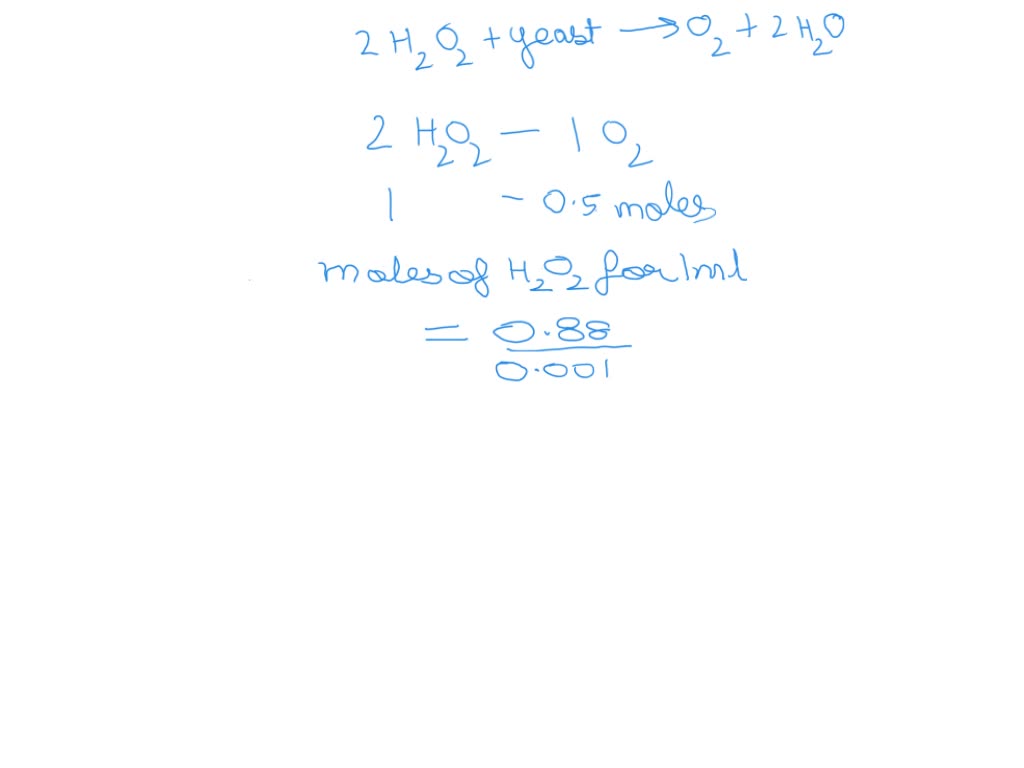 2 H₂O₂ + yeast → O₂ + 2 H₂O
2 H₂O₂ — 1 O₂
1 – 0.5 moles
moles of H₂O₂ for 1 ml
= 0.88
0.001